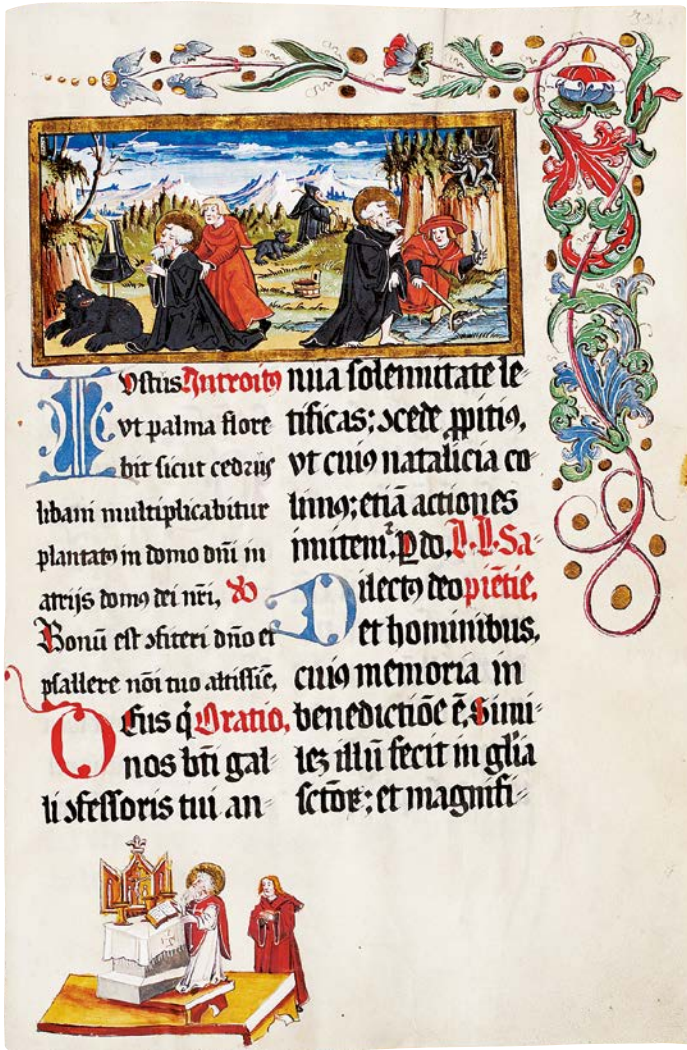 IVstus Introitꝰ
vt palma flore⸗
bit sicut cedrus
libani multiplicabitur
plantatꝰ in domo dñi in
atrijs domꝰ dei nr̃i,
Bonū est ↄfiteri dño et
psallere nōi tuo altissīe,
DEus q̇ Oratio,
nos bt̄i gal⸗
li ↄfessoris tui an⸗
nua solennitate le⸗
tificas; ↄcede ꝓpitiꝰ,
vt cuiꝰ natalicia co⸗
limꝰ; etiā actiones
imitem᷑. P do. L. L. Sa⸗
Dilectꝰ deo piētie,
et hominibus,
cuiꝰ memoria in
benedictiōe ē, Simi⸗
lez illū fecit in gl̄ia
sctōꝝ; et magnifi⸗